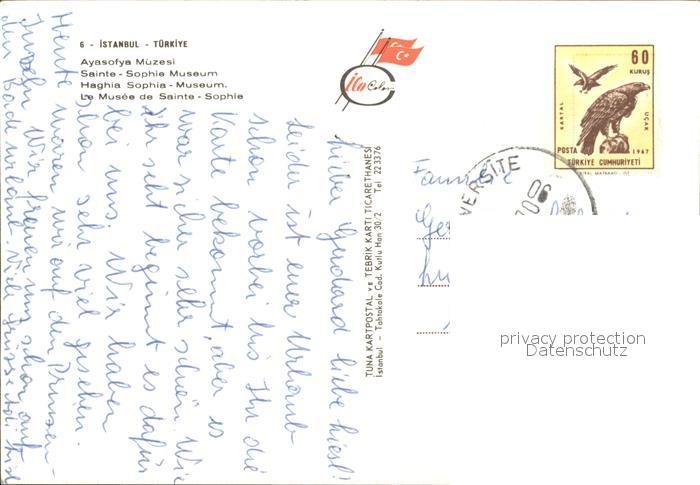 6 - İSTANBUL - TÜRKİYE
Ayasofya Müzesi
Sainte - Sophie Museum
Haghia Sophia - Museum.
Le Musée de Sainte - Sophie
Color
60
KURUŞ
KARTAL
UÇAK
POSTA 1967
TÜRKİYE CUMHURİYETİ
VERSİTE
06
TUNA KARTPOSTAL ve TEBRİK KARTI TİCARETHANESİ
İstanbul - Tahtakale Cad. Kutlu Han 30/2 Tel. 223376
Lieber Gerhard liebe
Leider ist euer Urlaub
schon vorbei bis Ihr die
Karte bekommt, aber es
war sicher sehr schön. Wie
Ihr seht beginnt es dafür
bei uns. Wir haben
schon sehr viel gesehen.
Heute waren wir auf den Prinzen-
Inseln. Wir freuen uns schon auf
den Badeurlaub. Viele Grüsse
Familie
privacy protection
Datenschutz